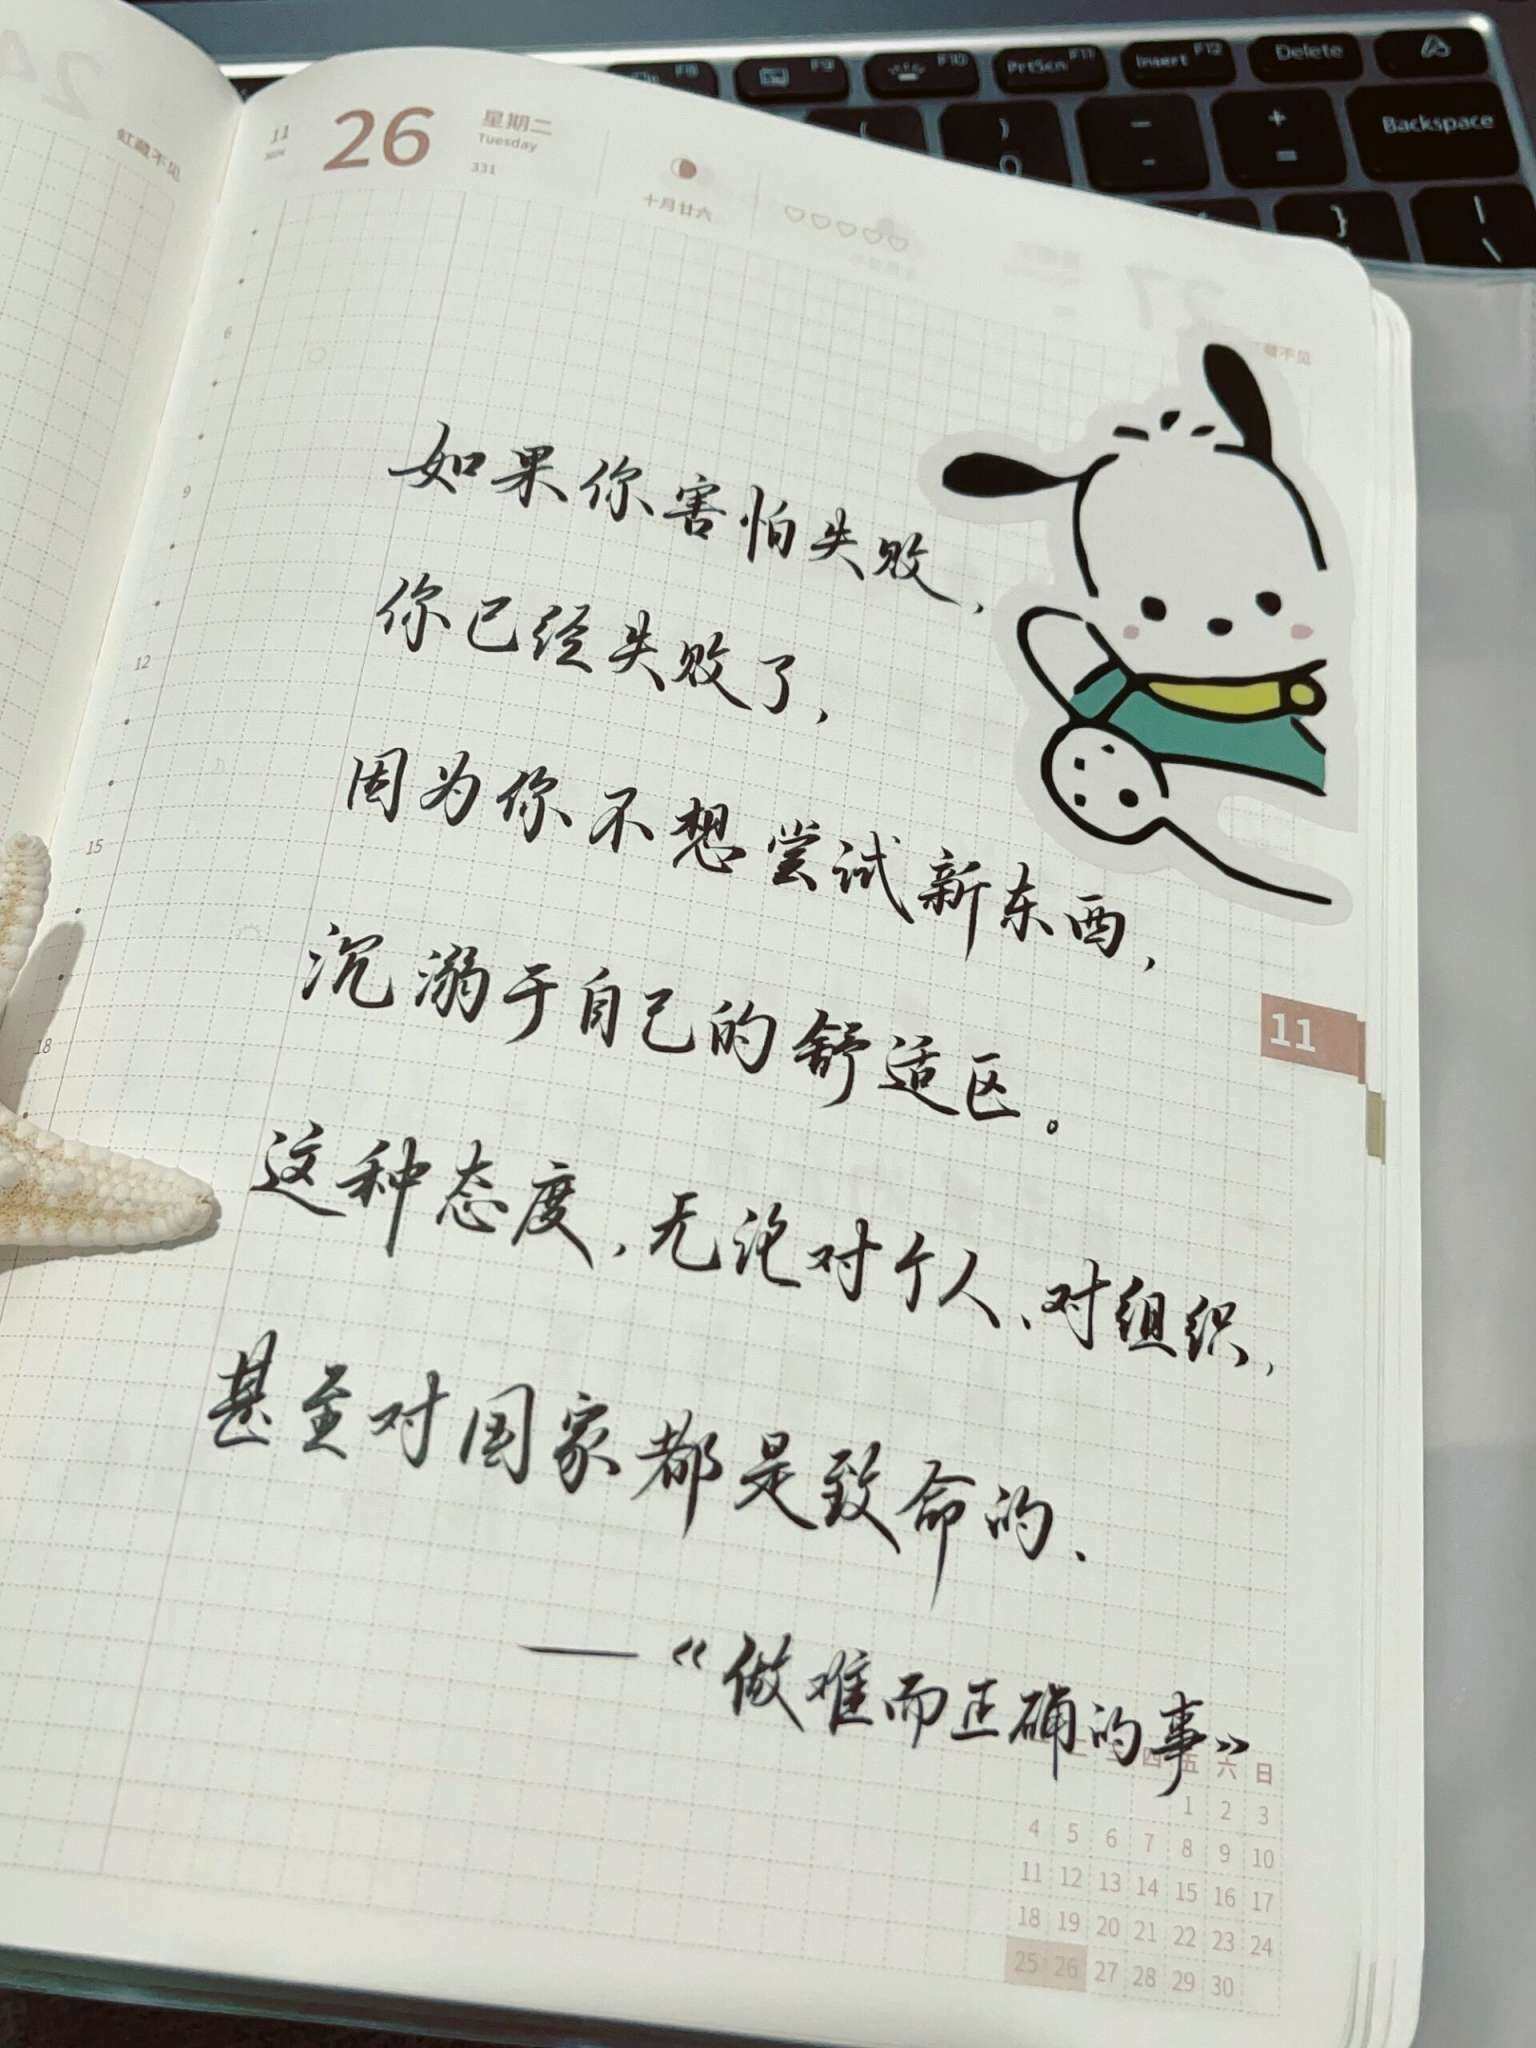 虹藏不见
11
26
星期二
Tuesday
331
十月廿六
6
9
12
15
18
如果你害怕失败，
你已经失败了，
因为你不想尝试新东西，
沉溺于自己的舒适区。
这种态度，无论对个人、对组织，
甚至对国家都是致命的、
——《做难而正确的事》
11
四 五 六 日
1 2 3
4 5 6 7 8 9 10
11 12 13 14 15 16 17
18 19 20 21 22 23 24
25 26 27 28 29 30
F8
F9
F10
PrtScn F11
Insert F12
Delete
Backspace